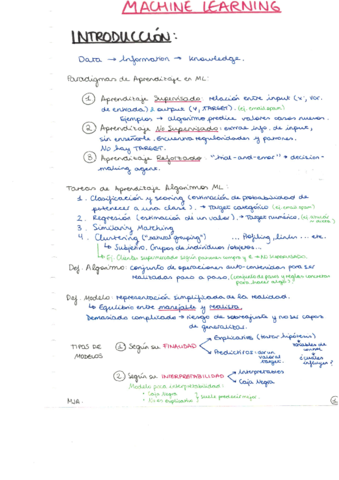 MACHINE LEARNING
INTRODUCCIÓN:
Data → Information → Knowledge.
Paradigmas de Aprendizaje en ML:
① Aprendizaje Supervisado: relación entre input (x, var.
de entrada) & output (y, TARGET). (ej. email spam)
Ejemplos → algoritmo predice valores casos nuevos.
② Aprendizaje No Supervisado: extrae info. de input,
sin enseñarle, encuentra regularidades y patrones.
No hay TARGET.
③ Aprendizaje Reforzado: "trial-and-error" → decision-
making agent.
Tareas de Aprendizaje Algoritmos ML:
1. Clasificación y scoring (estimación de probabilidad de
pertenecer a una clase). → Target categórico (ej. email spam)
2. Regresión (estimación de un valor). → Target numérico.
3. Similarity Matching
4. Clustering ... Profiling, links ... etc.
↳ Subjetivo. Grupos de individuos/objetos...
↳ Ej. Cliente supermercado según
Def. Algoritmo: conjunto de operaciones auto-contenidas para ser
realizadas paso a paso.
Def. Modelo: representación simplificada de la realidad.
↳ Equilibrio entre manejable y realista.
Demasiado complicado → riesgo de sobreajuste y no ser capaz
de generalizar.
TIPOS DE MODELOS
① Según su FINALIDAD
Explicativos
Predictivos
② Según su INTERPRETABILIDAD
Interpretables
Caja Negra
Modelo
• Caja Negra
suele predecir mejor.
MJA.